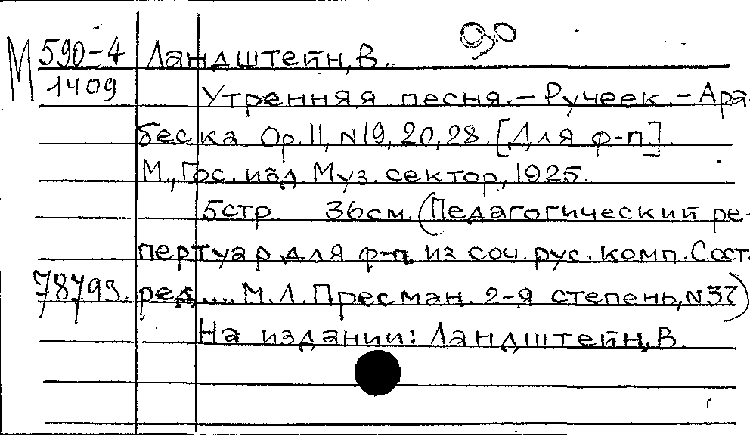 90
М 590-4 Ландштейн, В.
1409
Утренняя песня. - Ручеек. - Ара-
беска. Op. 11, N19, 20, 28. [Для ф-п.]
М., Гос. изд. Муз. сектор, 1925.
5стр. 36см. (Педагогический ре-
пертуар для ф-п. из соч. рус. комп. Сост.
78793. ред.... М.Л. Пресман. 2-я степень,
На издании: Ландштейн, В.